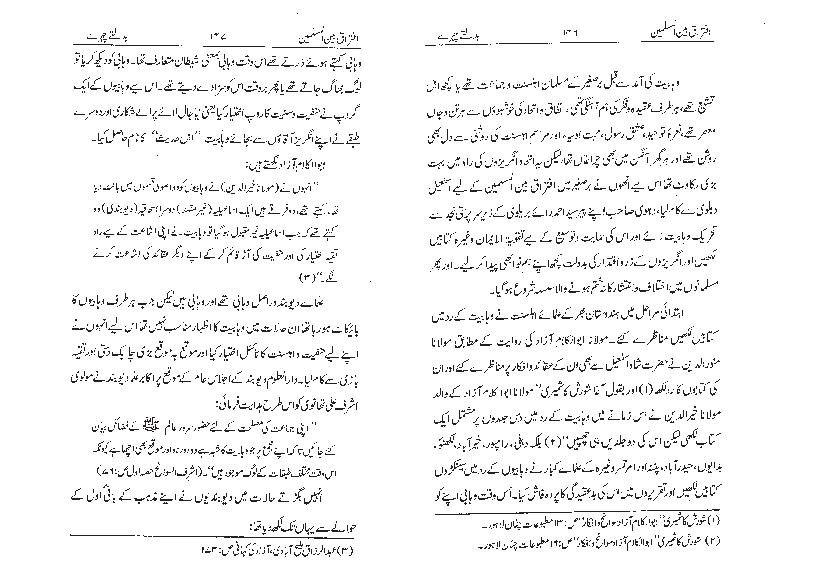 افتراق بین المسلمین ۱۳۶ بدلتے چہرے
وہابیت کی آمد سے قبل برصغیر کے مسلمان اہلسنت و جماعت تھے یا کچھ اہل
تشیع تھے، ہر طرف عقیدہ و فکر کی ہم آہنگی تھی، اتفاق و اتحاد کی خوشبوؤں سے ہر تن و جاں
معطر تھے، نعرۂ توحید، عشق رسول، محبت اولیاء اور مراسم اہلسنت کی روشنی سے دل بھی
روشن تھے اور ہر گھر آنگن میں بھی چراغاں تھا، لیکن یہ اتحاد انگریزوں کی راہ میں بہت
بڑی رکاوٹ تھا اس لیے انھوں نے برصغیر میں افتراق بین المسلمین کے لیے اسمٰعیل
دہلوی سے کام لیا، دہلوی صاحب اپنے پیر سید احمد رائے بریلوی کے زیر سرپرستی نجد سے
تحریک وہابیت لائے اور اس کی حمایت و توسیع کے لیے تقویۃ الایمان وغیرہ کتابیں
لکھیں اور انگریزوں کے زر و اقتدار کی بدولت کچھ اپنے ہم نوا بھی پیدا کر لیے۔ اور پھر
مسلمانوں میں اختلاف و انتشار کا نہ ختم ہونے والا سلسلہ شروع ہو گیا۔
ابتدائی مراحل میں ہندوستان بھر کے علمائے اہلسنت نے وہابیت کے رد میں
کتابیں لکھیں مناظرے کئے۔ مولانا ابوالکلام آزاد کی روایت کے مطابق مولانا
منور الدین نے حضرت شاہ اسمٰعیل سے بھی ان کے عقائد و افکار پر مناظرے کئے اور ان
کی کتابوں کا رد لکھا (۱) اور بقول آغا شورش کاشمیری "مولانا ابوالکلام آزاد کے والد
مولانا خیر الدین نے اس زمانے میں وہابیت کے رد میں دس جلدوں پر مشتمل ایک
کتاب لکھی لیکن اس کی دو جلدیں ہی چھپیں" (۲) بلکہ دہلی، رامپور، خیر آباد، لکھنؤ،
بدایوں، حیدر آباد، پٹنہ اور امرتسر وغیرہ کے علمائے کبار نے وہابیوں کے رد میں سینکڑوں
کتابیں لکھیں اور تقریروں میں اس کی بد عقیدگی کا پردہ فاش کیا۔ اُس وقت وہابی اپنے کو
(۱) شورش کاشمیری "ابوالکلام آزاد سوانح و افکار" ص: ۱۳ مطبوعات چٹان لاہور۔
(۲) شورش کاشمیری "ابوالکلام آزاد سوانح و افکار" ص: ۱۶ مطبوعات چٹان لاہور۔
افتراق بین المسلمین ۱۳۷ بدلتے چہرے
وہابی کہتے ہوئے ڈرتے تھے اس وقت وہابی بمعنی شیطان متعارف تھا۔ وہابی کو دیکھ کر یا تو
لوگ بھاگ جاتے تھے یا پھر بروقت اس کو سزا دے دیتے تھے۔ اس لیے وہابیوں کے ایک
گروپ نے حنفیت و سنیت کا روپ اختیار کیا یعنی نیا جال لائے پرانے شکاری اور دوسرے
طبقے نے اپنے انگریز آقاؤں سے بجائے وہابیت "اہل حدیث" کا نام حاصل کیا۔
ابوالکلام آزاد لکھتے ہیں:
"انہوں نے (مولانا خیر الدین) نے وہابیوں کو دو اصولی قسموں میں بانٹ دیا
تھا۔ کہتے تھے، دو فرقے ہیں ایک اسماعیلیہ (غیر مقلد) دوسرا اسحاقیہ (دیوبندی) وہ
کہتے تھے کہ جب اسماعیلیہ غیر مقبول ہو گیا تو وہابیت نے اپنی اشاعت کے لیے راہ
تقیہ اختیار کی اور حنفیت کی آڑ قائم کر کے اپنے دیگر عقائد کی اشاعت کرنے
لگے۔" (۳)
علمائے دیوبند دراصل وہابی تھے اور وہابی ہیں لیکن جب ہر طرف وہابیوں کا
بائیکاٹ ہو رہا تھا ان حالات میں وہابیت کا اظہار مناسب نہیں تھا اس لیے انہوں نے
اپنے لیے حنفیت و اہلسنت کا ٹائٹل اختیار کیا اور موقع بہ موقع بڑی چابک دستی اور تقیہ
بازی سے کام لیا۔ دارالعلوم دیوبند کے اجلاس عام کے موقع پر اکابر علماء دیوبند نے مولوی
اشرف علی تھانوی کو اس طرح ہدایت فرمائی:
"اپنی جماعت کی مصلحت کے لئے حضور سرور عالم ﷺ کے فضائل بیان
کئے جائیں تاکہ اپنے مجمع پر جو وہابیت کا شبہ ہے وہ دور ہو اور موقع بھی اچھا ہے کیونکہ
اس وقت مختلف طبقات کے لوگ موجود ہیں" (اشرف السوانح حصہ اول ص: ۷۶)
انہیں بگڑتے حالات میں دیوبندیوں نے اپنے مذہب کے بانی اول کے
حوالے سے یہاں تک لکھ دیا تھا:
(۳) عبدالرزاق ملیح آبادی، آزاد کی کہانی ص: ۱۷۳